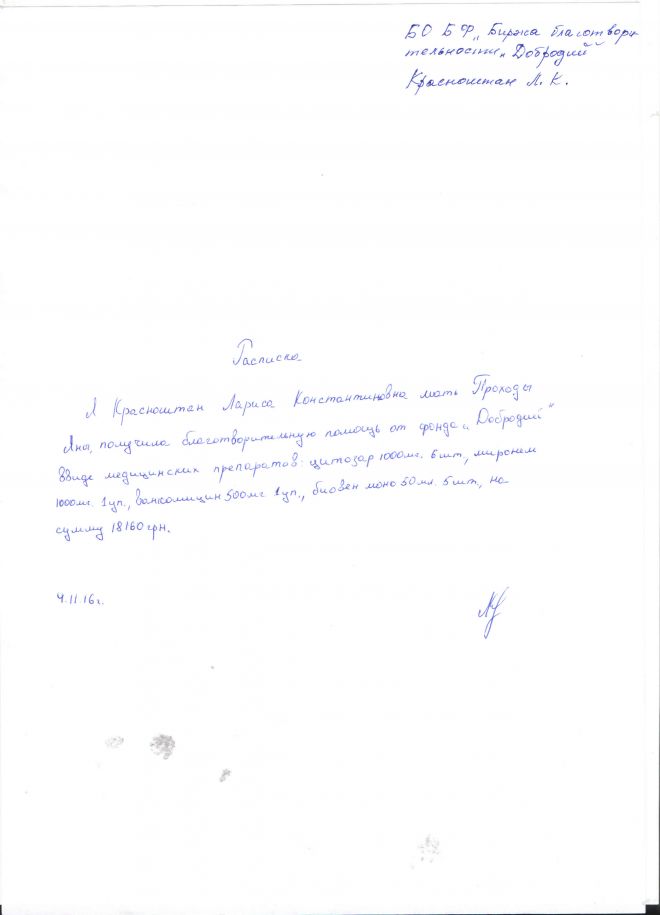 БО БФ „Биржа благотвори-
тельности „Добродий"
Красноштан Л. К.
Расписка
Я Красноштан Лариса Константиновна мать Проходы
Яны, получила благотворительную помощь от фонда „Добродий"
ввиде медицинских препаратов: цитозар 1000мг. 6шт., миронем
1000мг. 1уп., ванкомицин 500мг 1уп., биовен моно 50мл. 5шт., на
сумму 18160грн.
4.11.16г.